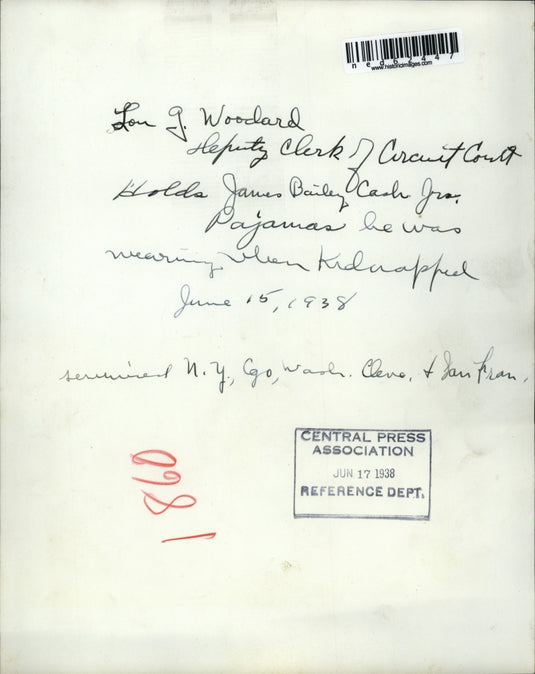 ned62447
www.historicimages.com
Lon G. Woodard
Deputy Clerk of Circuit Court
Holds James Bailey Cash Jrs.
Pajamas he was
wearing when Kidnapped
June 15, 1938
serviced N.Y, Cgo, Wash. Cleve, & San Fran.
CENTRAL PRESS
ASSOCIATION
JUN 17 1938
REFERENCE DEPT.
1860